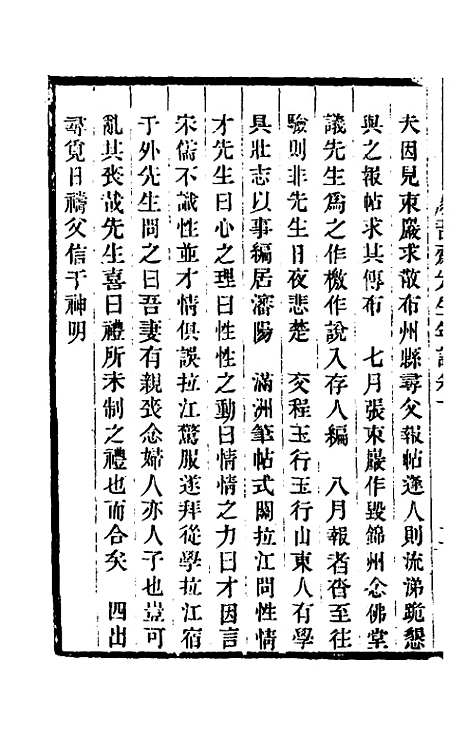 夫因見東巖求散布州縣尋父報帖逢人則流涕跪懇
與之報帖求其傳布　七月張東巖作毀錦州念佛堂
議先生爲之作檄作說入存人編　八月報者沓至往
驗則非先生日夜悲楚　交程玉行玉行山東人有學
具壯志以事編居瀋陽　滿洲筆帖式關拉江問性情
才先生曰心之理曰性性之動曰情情之力曰才因言
宋儒不識性並才情俱誤拉江驚服遂拜從學拉江宿
于外先生問之曰吾妻有親喪念婦人亦人子也豈可
亂其喪哉先生喜曰禮所未制之禮也而合矣　四出
尋覓日禱父信于神明